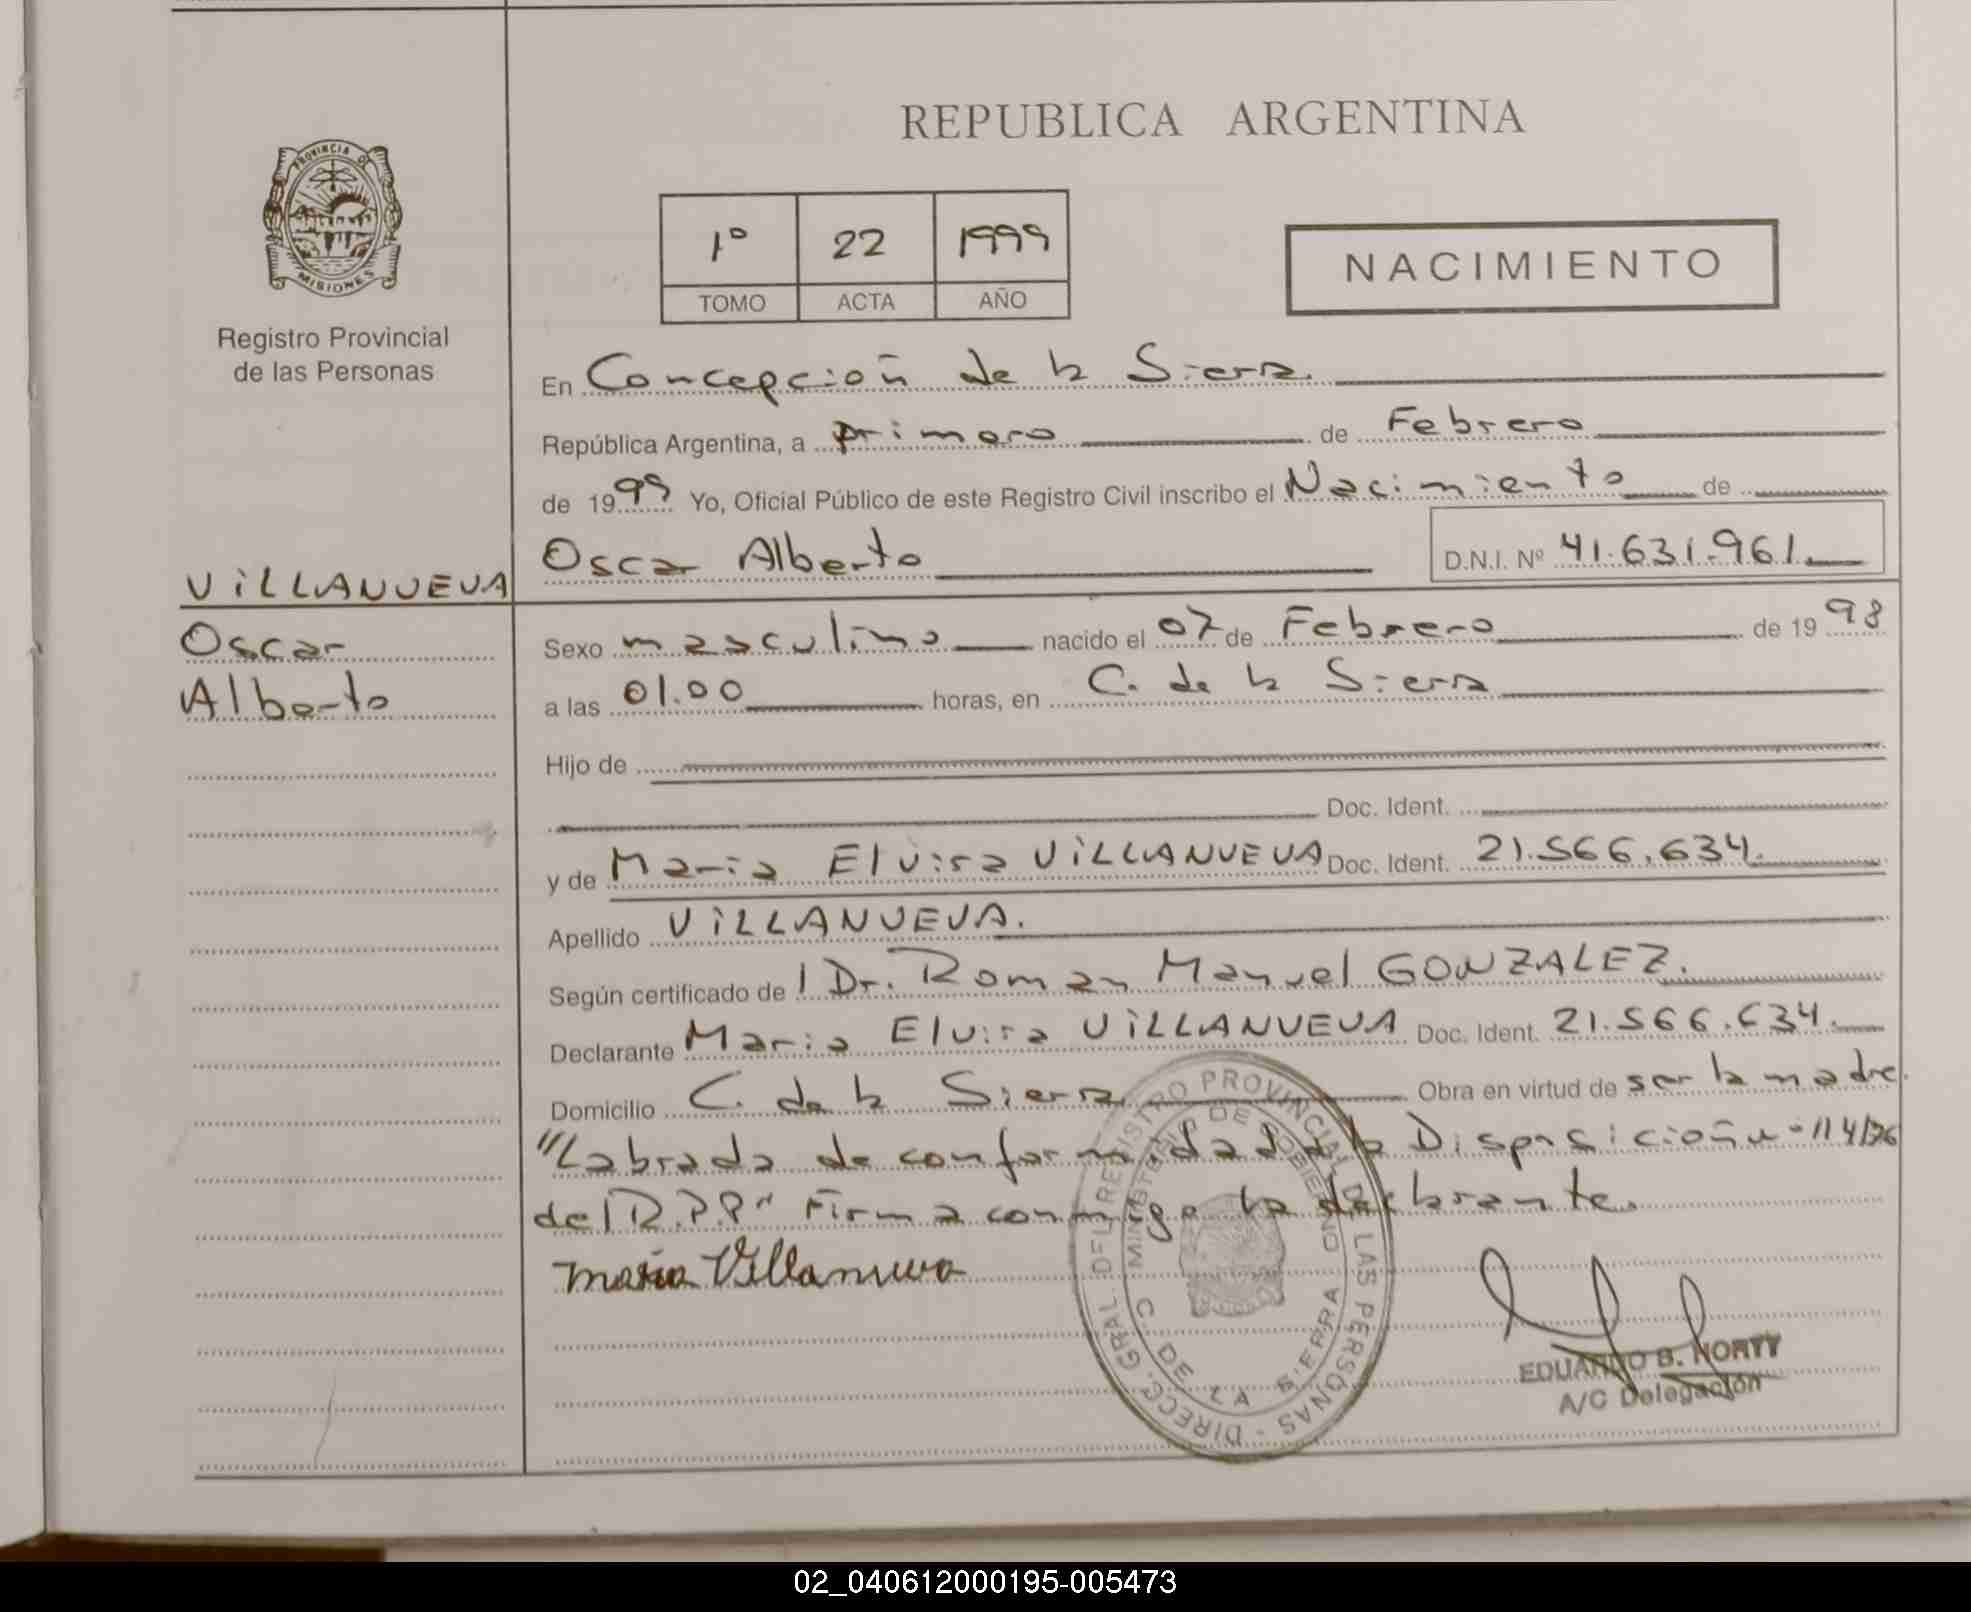 REPUBLICA ARGENTINA
PROVINCIA DE
MISIONES
Registro Provincial
de las Personas
1º 22 1999
TOMO ACTA AÑO
NACIMIENTO
En Concepción de la Sierra.
República Argentina, a primero de Febrero
de 1999 Yo, Oficial Público de este Registro Civil inscribo el Nacimiento de
Oscar Alberto D.N.I. Nº 41.631.961.
VILLANUEVA
Oscar
Alberto
Sexo masculino nacido el 07 de Febrero de 1998
a las 01.00 horas, en C. de la Sierra
Hijo de
Doc. Ident.
y de Maria Elvira VILLANUEVA Doc. Ident. 21.566.634.
Apellido VILLANUEVA.
Según certificado de l Dr. Roman Manuel GONZALEZ.
Declarante Maria Elvira VILLANUEVA Doc. Ident. 21.566.634.
Domicilio C. de la Sierra Obra en virtud de ser la madre.
"Labrada de conformidad a la Disposición nº 114/96
del R.P.P" Firma conmigo la declarante.
Maria Villanueva
DIRECC. GRAL. DEL REGISTRO PROVINCIAL DE LAS PERSONAS -
MINISTERIO DE GOBIERNO
C. DE LA SIERRA
EDUARDO B. NORTY
A/C Delegación
02_040612000195-005473